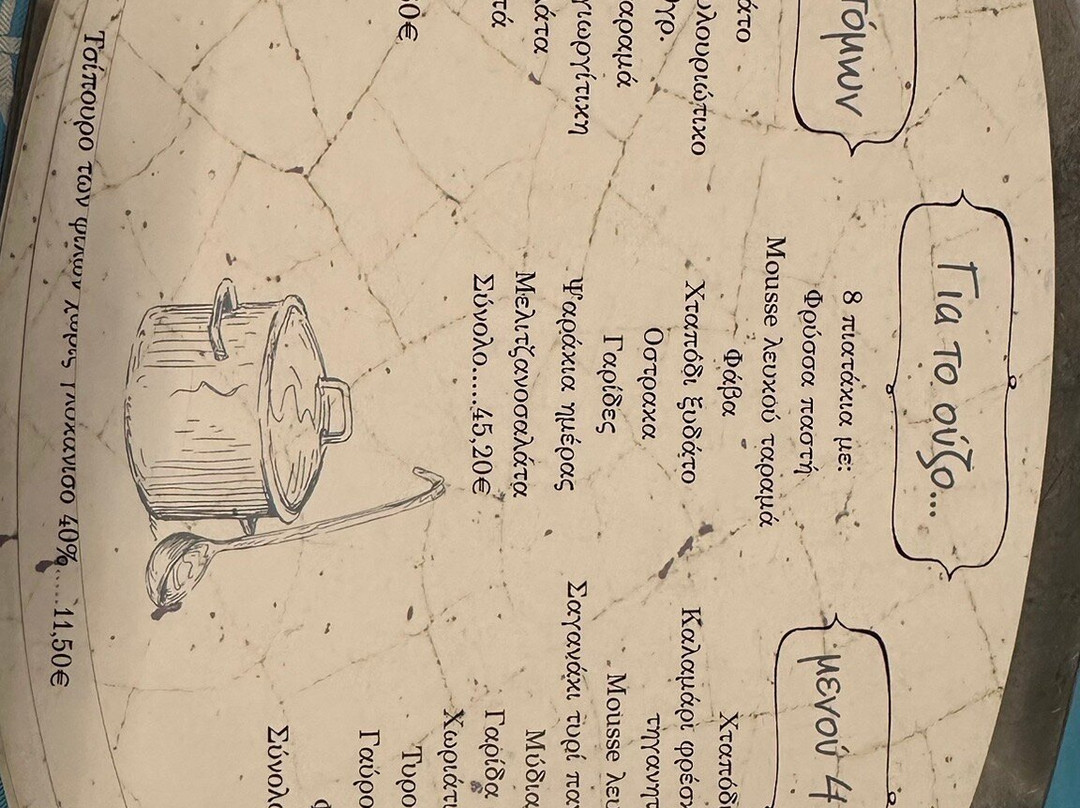 τόμων
άτο
υλουριώτικο
γρ.
αραμά
γιωργίτικη
λάτα
τά
60€
Για το ούζο...
8 πιατάκια με:
Φρύσσα παστή
Mousse λευκού ταραμά
Φάβα
Χταπόδι ξυδάτο
Οστρακα
Γαρίδες
Ψαράκια ημέρας
Μελιτζανοσαλάτα
Σύνολο......45,20€
μενού 4
Χταπόδι
Καλαμάρι φρέσκ
τηγανητ
Mousse λευ
Σαγανάκι τυρί πα
Μύδια
Γαρίδα
Χωριάτι
Τυρο
Γαύρο
Σύνολο
Τσίπουρο των φίλων χωρίς γλυκάνισο 40%.....11,50€